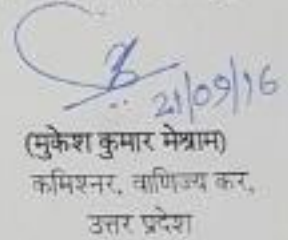 21/09/16
(मुकेश कुमार मेश्राम)
कमिश्नर, वाणिज्य कर,
उत्तर प्रदेश